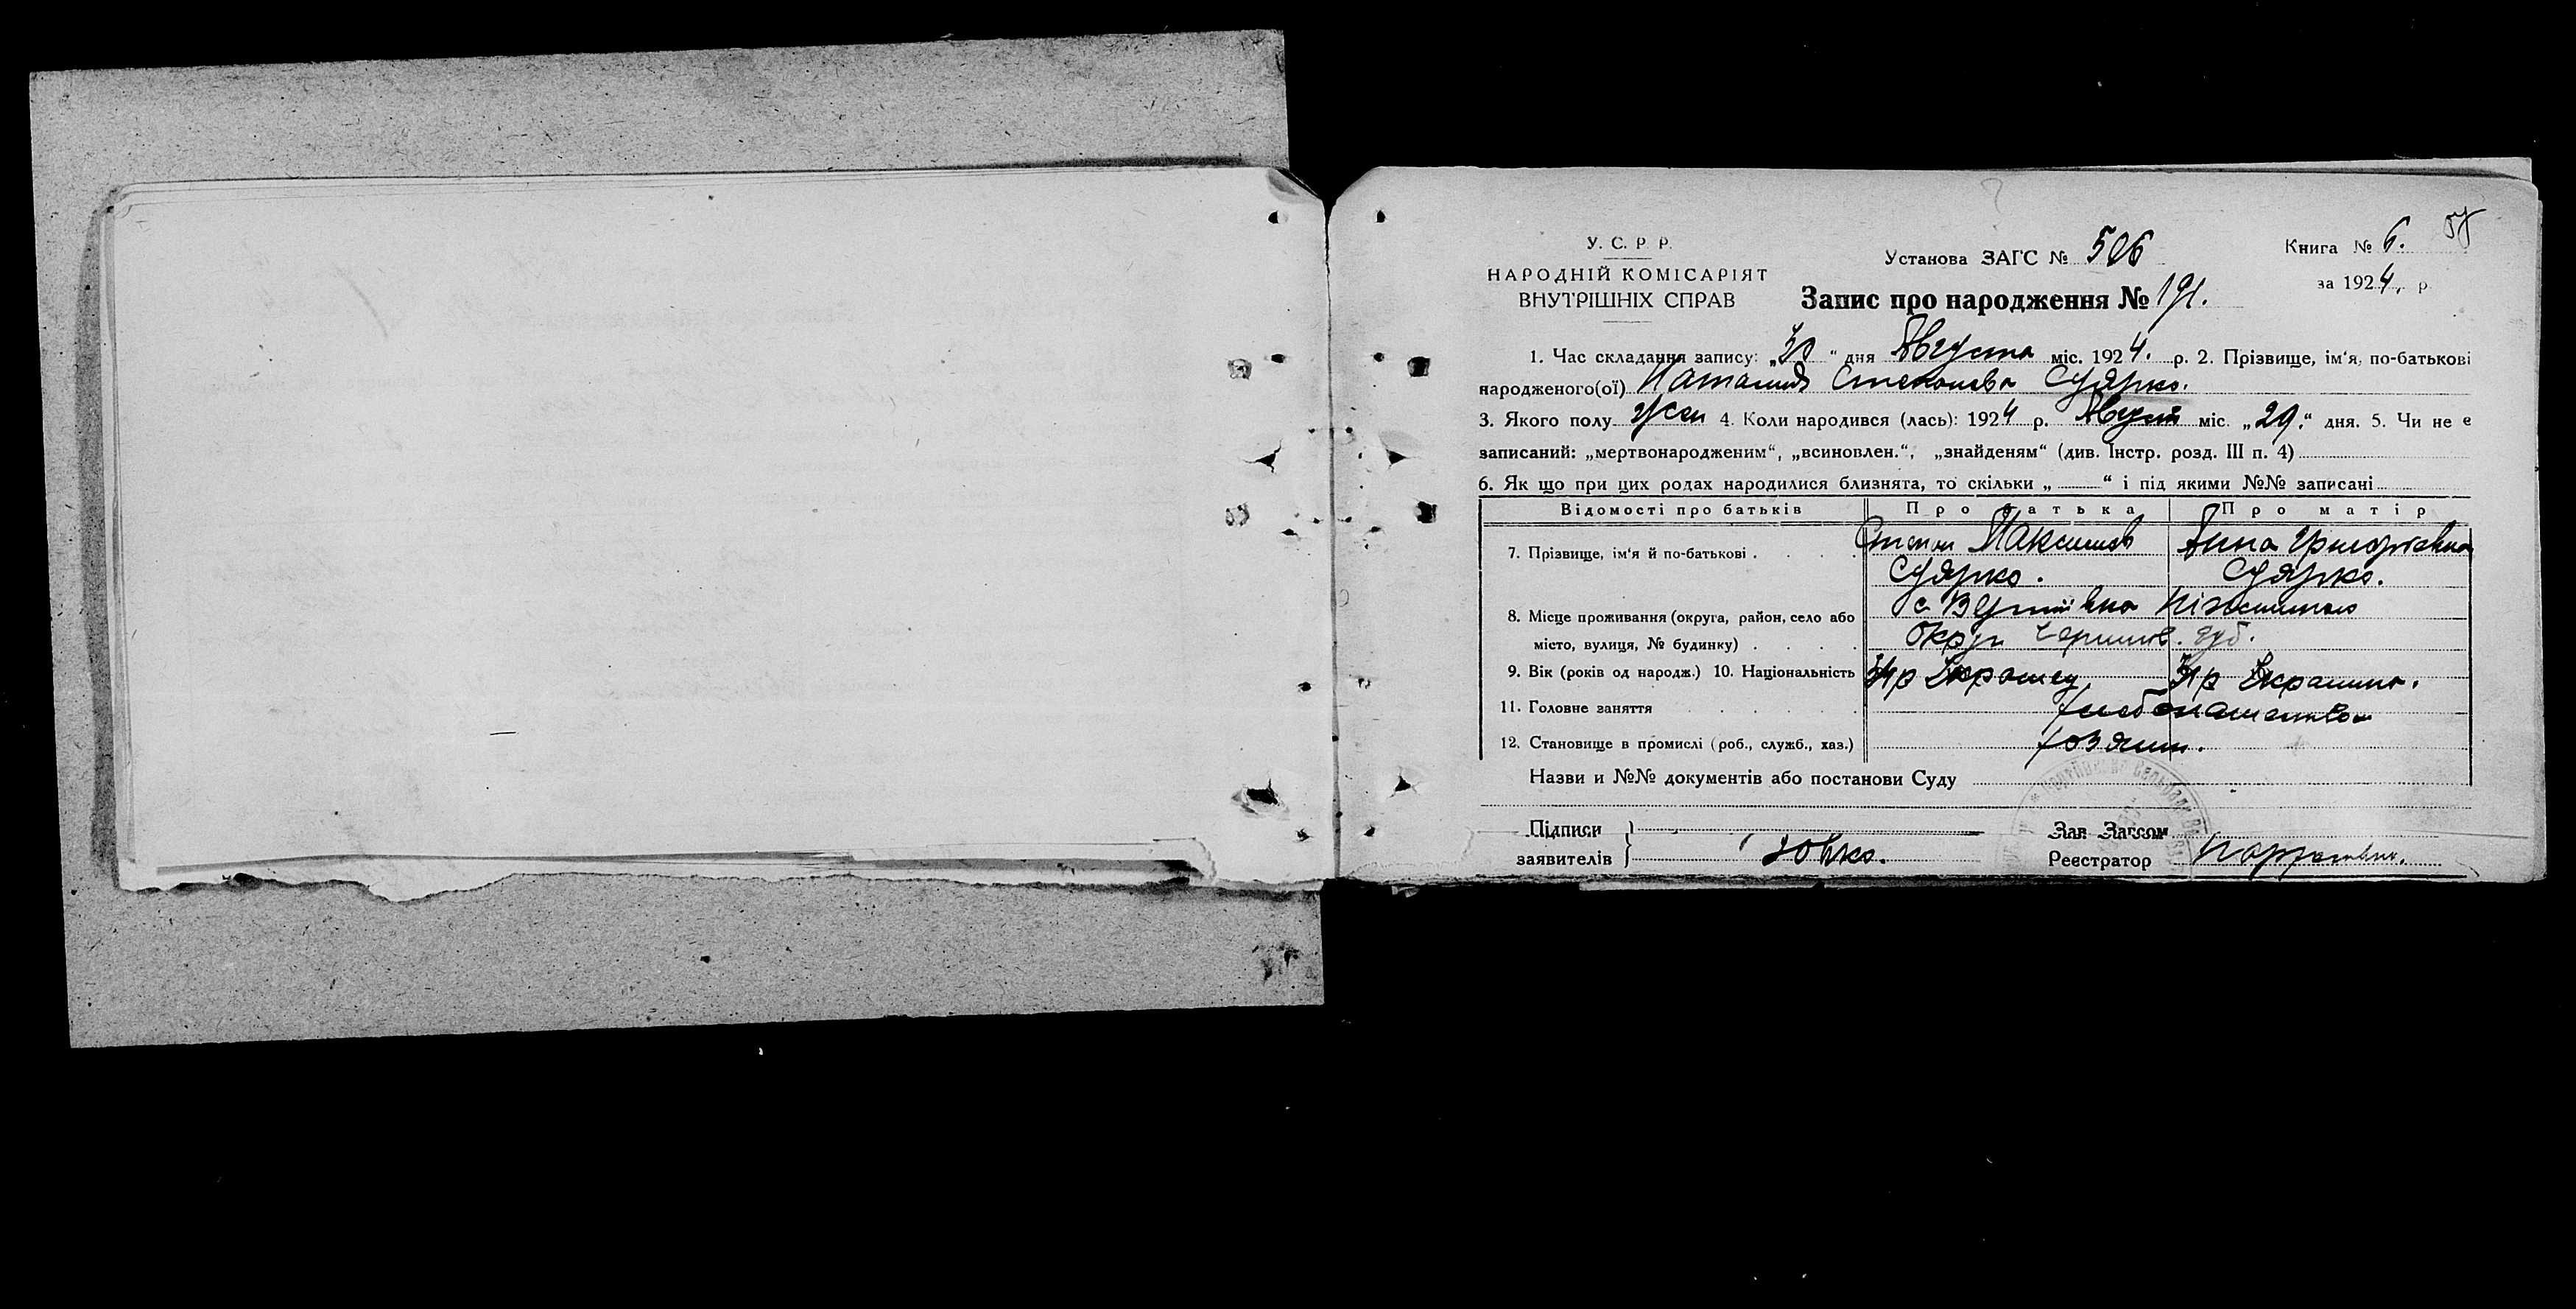 У. С. Р. Р.
НАРОДНІЙ КОМІСАРІЯТ
ВНУТРІШНІХ СПРАВ
Установа ЗАГС № 506
Книга № 6.
за 1924. р.
Запис про народження № 191.
1. Час складання запису: „30“ дня Августа міс. 1924. р. 2. Прізвище, ім‘я, по-батькові
народженого(ої) Наталия Степанова Суярко.
3. Якого полу жен 4. Коли народився (лась): 1924 р. Август міс. „29.“ дня. 5. Чи не є
записаний: „мертвонародженим“, „всиновлен.“, „знайденям“ (див. Інстр. розд. III п. 4)
6. Як що при цих родах народилися близнята, то скільки „ “ і під якими №№ записані
Відомості про батьків Про батька Про матір
7. Прізвище, ім‘я й по-батькові Степан Максимов Анна Григорьевна
Суярко. Суярко.
8. Місце проживання (округа, район, село або с. Вертіївка Ніжинського
місто, вулиця, № будинку) Округ Чернигов. губ.
9. Вік (років од народж.) 10. Національність р р
11. Головне заняття хлебопашество
12. Становище в промислі (роб., служб., хаз.) хозяин.
Назви и №№ документів або постанови Суду
Підписи
заявителів
Зав Загсом
Реєстратор